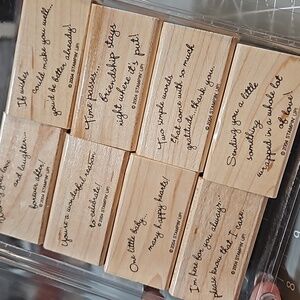 If wishes
could make you well,
you'd be better already!
© 2004 STAMPIN' UP!
Time passes...
friendship stays
right where it's put!
© 2004 STAMPIN' UP!
Two simple words
that come with so much
gratitude: thank you.
© 2004 STAMPIN' UP!
Sending you a little
something
wrapped in a whole lot
of love!
© 2004 STAMPIN' UP!
you love
and laughter...
forever after!
© 2004 STAMPIN' UP!
You're a wonderful reason
to celebrate!
© 2004 STAMPIN' UP!
One little baby,
many happy hearts!
© 2004 STAMPIN' UP!
I'm here for you always...
please know that I care.
© 2004 STAMPIN' UP!